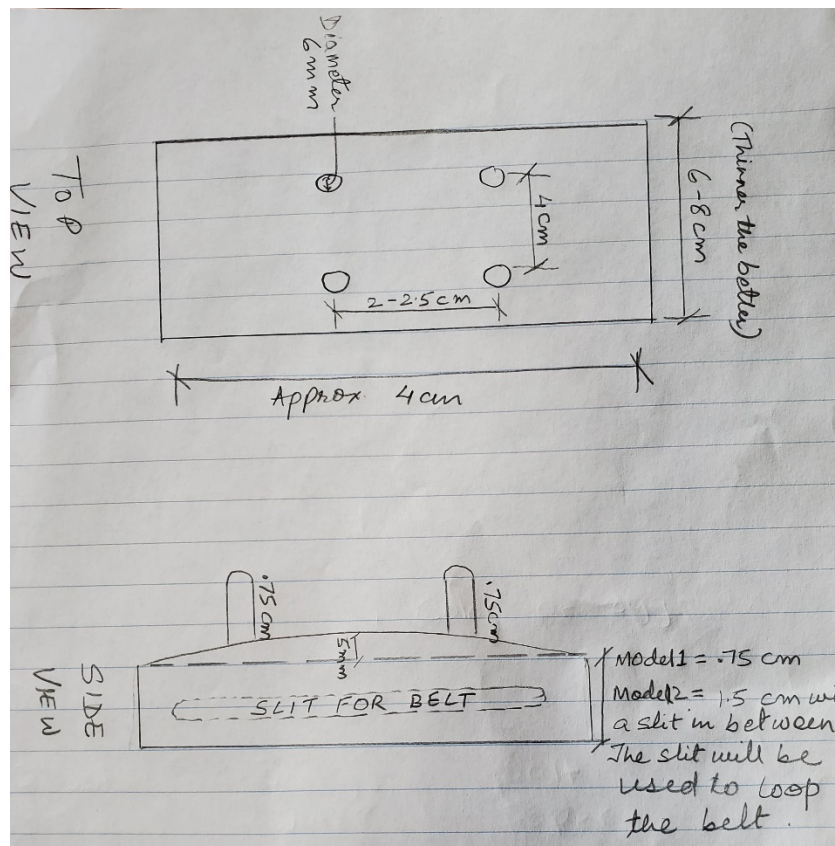 Diameter
6mm
(Thinner the better)
6-8cm
4cm
2-2.5cm
Approx. 4cm
TOP
VIEW
.75cm
.75cm
5mm
SLIT FOR BELT
SIDE
VIEW
Model1 = .75 cm
Model2 = 1.5 cm wi
a slit in between
The slit will be
used to loop
the belt.